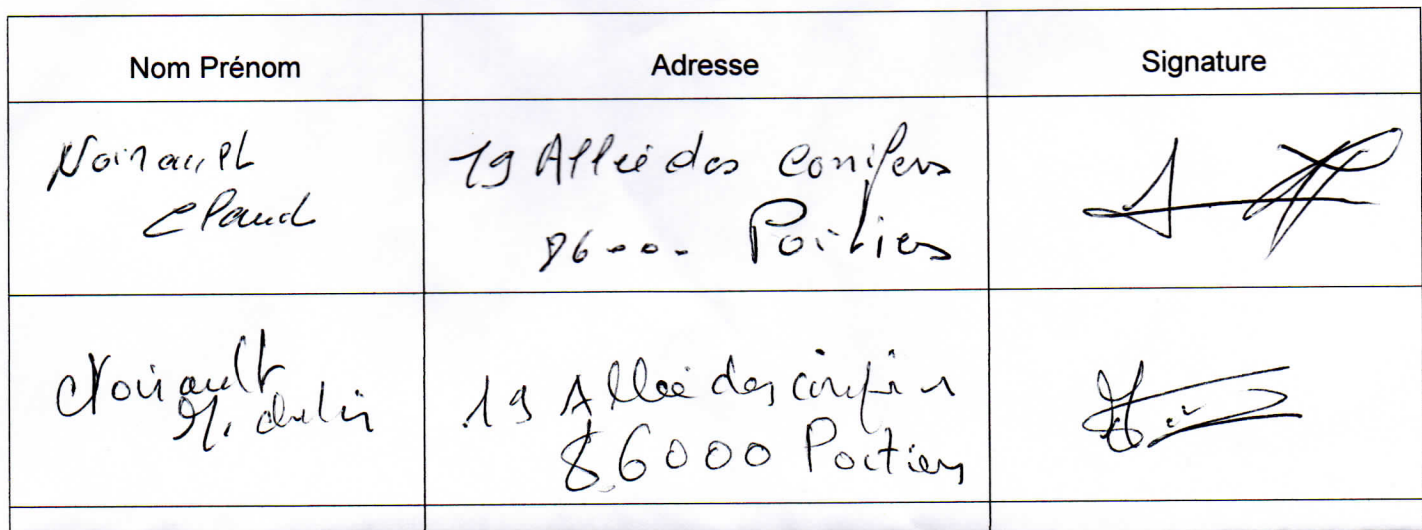 Nom Prénom Adresse Signature
Noirault
Claud
19 Allée des conifers
86000 Poitiers
Noirault
Michelin
19 Allée des conifin
86000 Poitiers